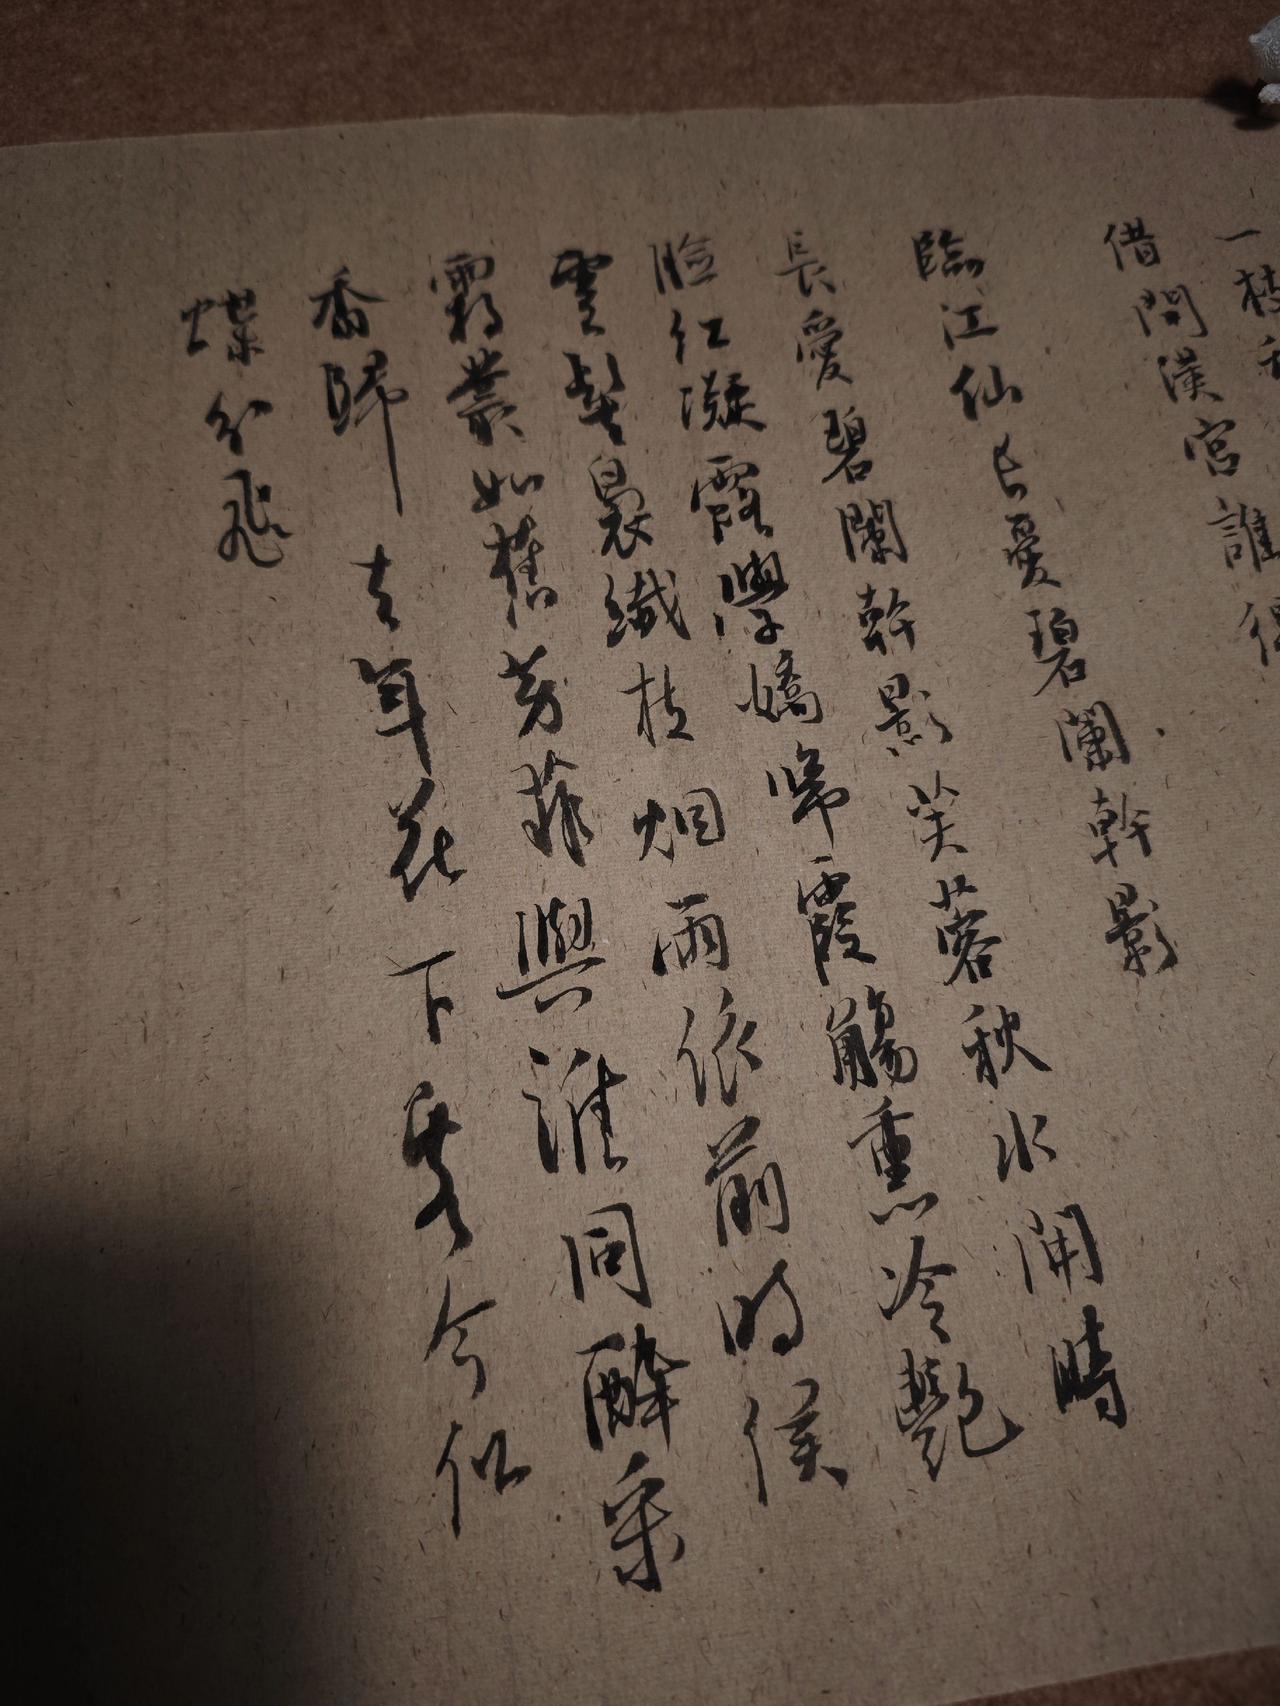 一枝
借問漢宮誰得
臨江仙 长愛碧闌幹影
長愛碧闌幹影芙蓉秋水開時
臉紅凝露學嬌啼霞觴熏冷艷
雲髻裊纖枝烟雨依前時候
霜叢如舊芳菲與誰同醉采
香歸去年花下客今似
蝶分飛